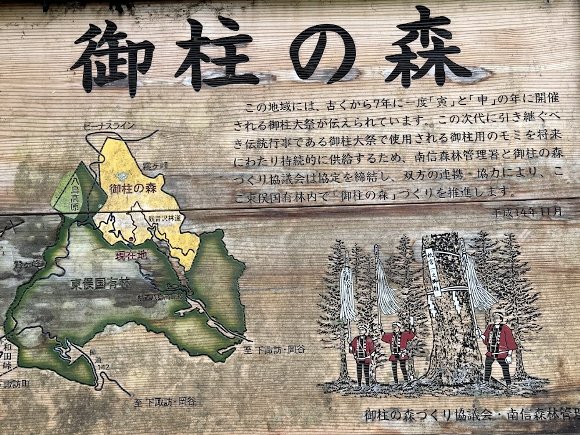 御柱の森
この地域には、古くから7年に一度「寅」と「申」の年に開催
される御柱大祭が伝えられています。この次代に引き継ぐべ
き伝統行事である御柱大祭で使用される御柱用のモミを将来
にわたり持続的に供給するため、南信森林管理署と御柱の森
づくり協議会は協定を締結し、双方の連携・協力により、こ
こ東俣国有林内で「御柱の森」づくりを推進します。
平成14年11月
ビーナスライン
霧ヶ峰
八島高原
御柱の森
観音沢林道
現在地
東俣国有林
至 下諏訪・岡谷
142
至 下諏訪・岡谷
御柱の森づくり協議会・南信森林管理